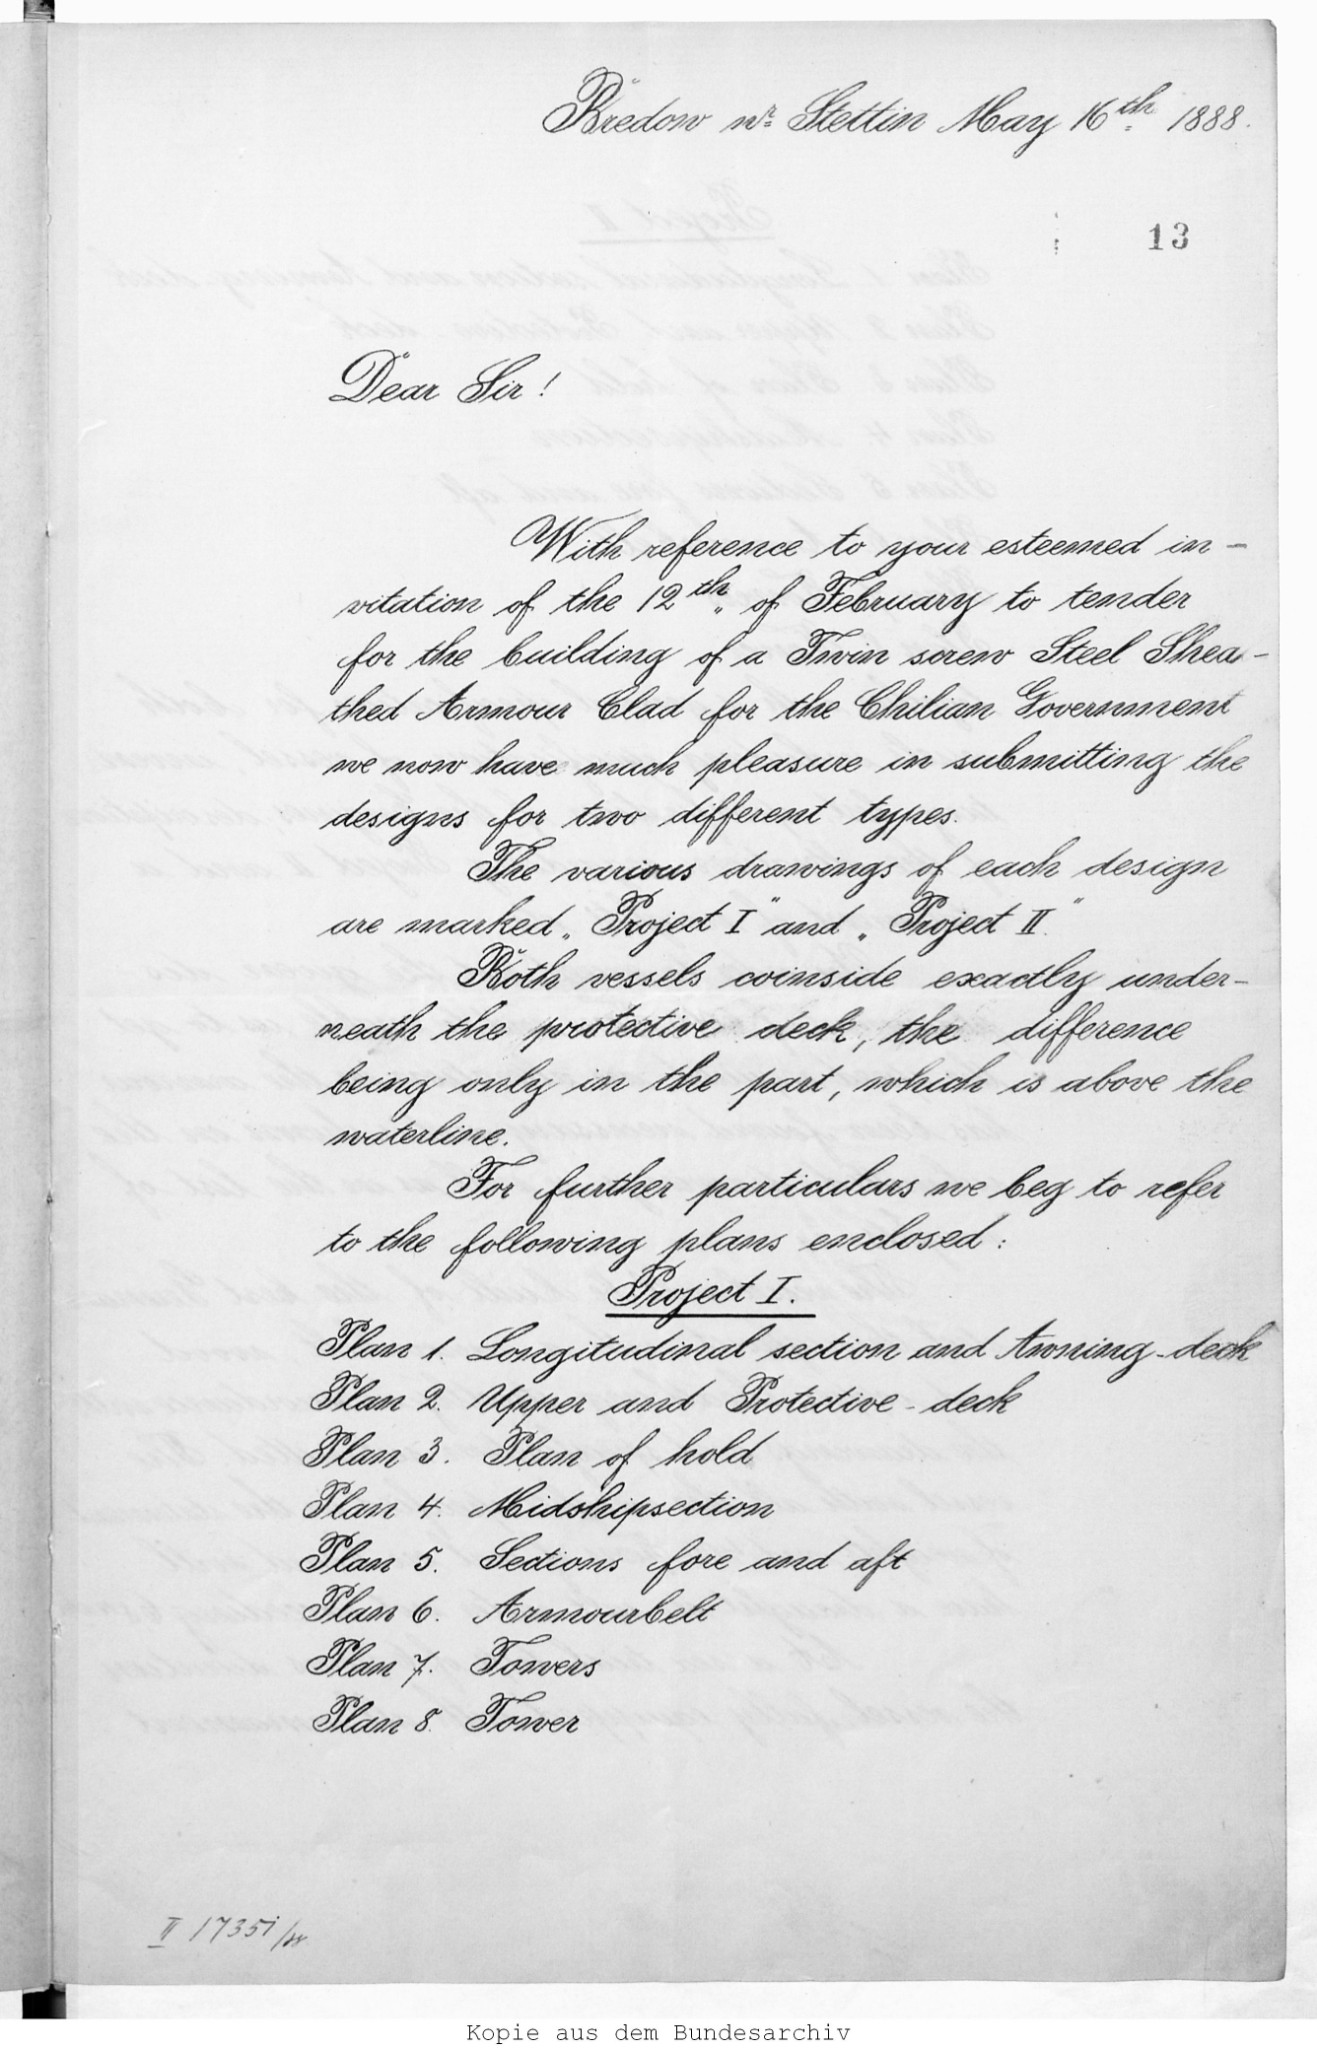 Bredow nr. Stettin May 16th 1888.
13
Dear Sir!
With reference to your esteemed in-
vitation of the 12th of February to tender
for the building of a Twin screw Steel Shea-
thed Armour Clad for the Chilian Government
we now have much pleasure in submitting the
designs for two different types.
The various drawings of each design
are marked „Project I" and „Project II."
Both vessels coinside exactly under-
neath the protective deck, the difference
being only in the part, which is above the
waterline.
For further particulars we beg to refer
to the following plans enclosed:
Project I.
Plan 1. Longitudinal section and Awning-deck
Plan 2. Upper and Protective-deck
Plan 3. Plan of hold
Plan 4. Midshipsection
Plan 5. Sections fore and aft
Plan 6. Armourbelt
Plan 7. Towers
Plan 8. Tower
II
Kopie aus dem Bundesarchiv